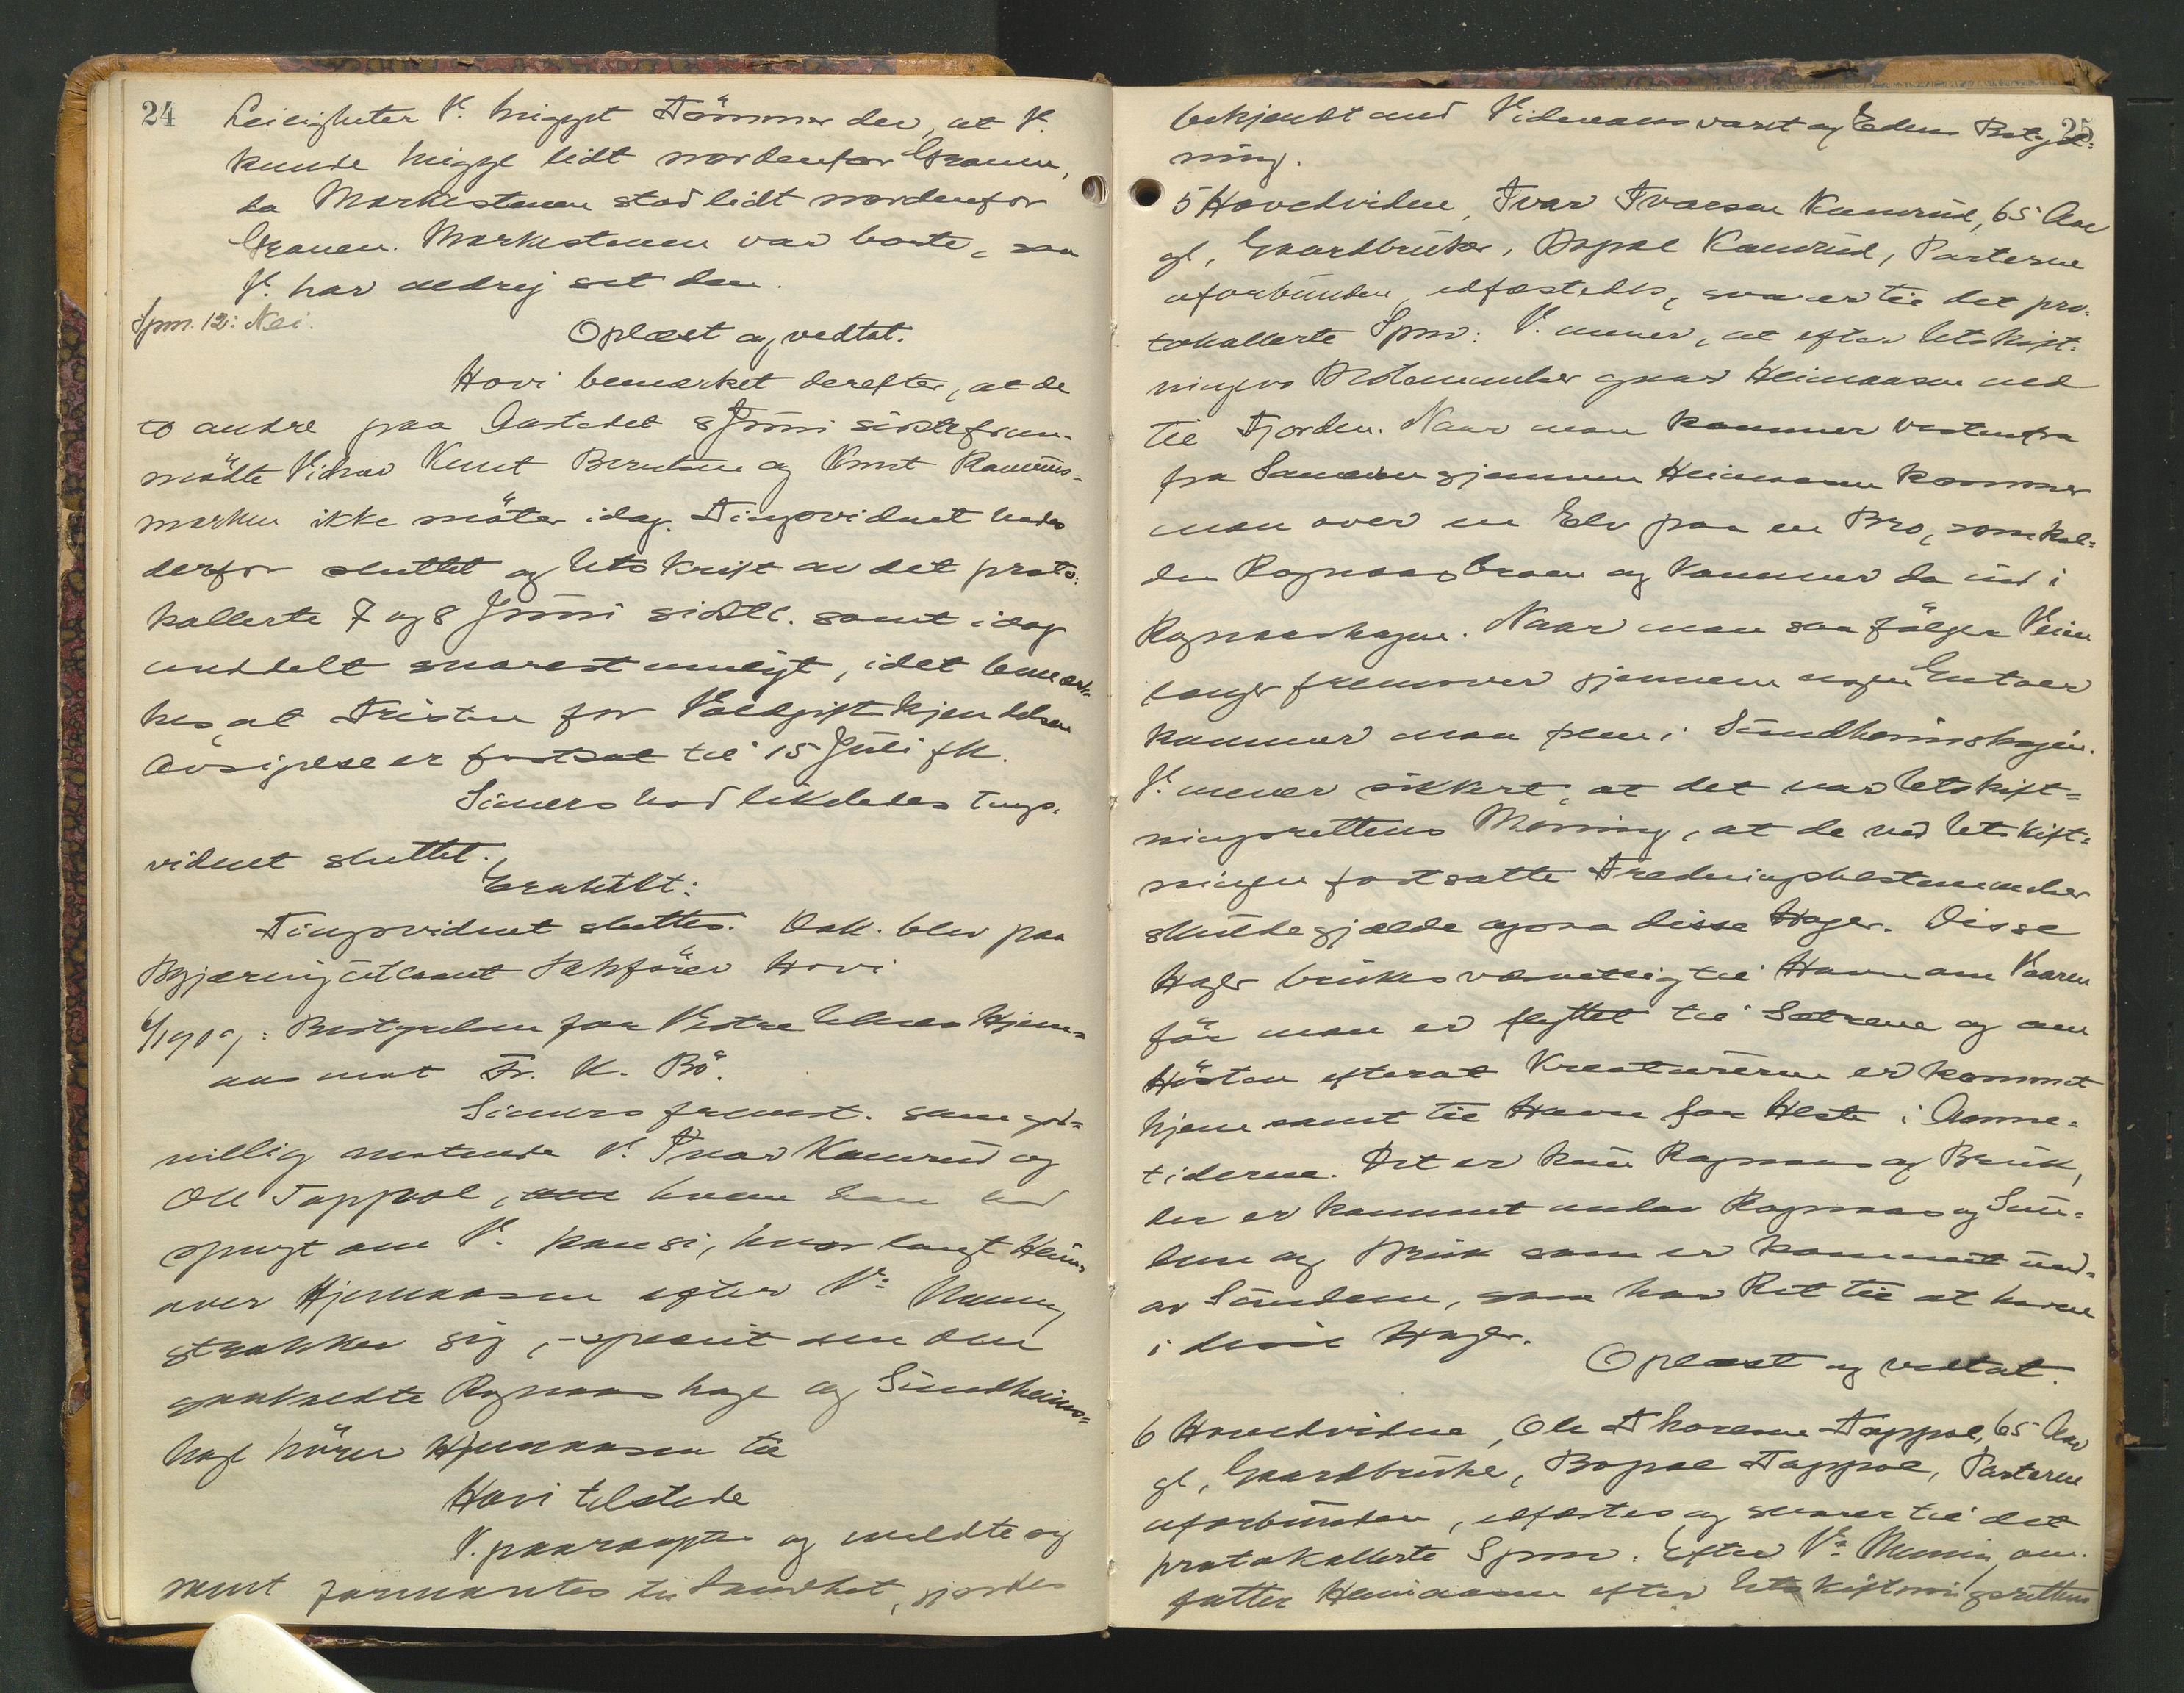 24
Leiligheter V. hugget Tömmer der, at V.
kunde hugge lidt nordenfor Granen,
da Markestenen stod lidt nordenfor
Granen. Markestenen var borte, saa
V. har aldrig set den.
Spm. 12: Nei.
Oplæst og vedtat.
Hovi bemerket derefter, at de
to andre paa Aastedet 8 Juni sidste frem-
mödte Vidner Knut Berntsen og Knut
marken ikke möter idag. Tingsvidnet bades
derfor sluttet og Utskrift av det proto-
kollerte 7 og 8 Juni sidstl. samt idag
meddelt snarest muligt, idet bemær-
kes, at Fristen for Voldgiftskjendelsens
Avsigelse er fastsat til 15 Juli fk.
Simers bad likeledes Tings-
vidnet sluttet.
Erahtet:
Tingsvidnet sluttes. Dok. blev paa
Begjæring utlaant Sakförer Hovi
6/1909: Bestyrelsen for Vestre Hjem-
aas mot Fr. K. Bö.
Simers fremst. som god-
villig møtende V. Ivar Kamrud og
Ole Tappol, hvem han bad
spurgt om V. kan si, hvor langt Heim-
over Hjemaasen efter Vs Mening
strækker sig, specielt om den
saakaldte Rognaashage og Sundheims-
hage hörer Hjemaasen til
Hovi tilstede
V. paaraaptes og meldte sig
samt formantes til Sandhet, gjordes
25
bekjendt med Vidneansvaret og Edens Betyd-
ning.
5 Hovedvidne, Ivar Ivarsen Kamrud, 65 Aar
gl, Gaardbruker, Bopæl Kamrud, Parterne
uforbunden, edfæstedes, svarer til det pro-
tokollerte Spm: V. mener, at efter Utskift-
ningens Bestemmelser gaar Heimaasen ned
til Fjorden. Naar man kommer vestenfra
fra gjennem Heimaasen kommer
man over en Elv paa en Bro, som kal-
des Rognaasbroen og kommer da ind i
Rognaashagen. Naar man saa fölger Veien
længer fremover gjennem nogen
kommer man frem i Sundheimshagen.
V. mener sikkert, at det var Utskift-
ningsrettens Mening, at de ved Utskift-
ningen fastsatte Fredningsbestemmelser
skulde gjælde ogsaa disse Hager. Disse
Hager brukes væsentlig til Havn om Vaaren
för man er flyttet til Sætrene og om
Hösten efterat Kreaturerne er kommet
hjem samt til Havn for Heste i Aanne-
tiderne. Det er kun Rognaas og Bruk,
der er kommet under Rognaas og Sun-
dem og Bruk som er kommet und-
av Sundem, som har Ret til at havne
i disse Hager.
Oplæst og vedtat.
6 Hovedvidne, Ole Thoresen Tappol, 65 Aar
gl, Gaardbruker, Bopæl Tappol, Parterne
uforbunden, edfæstes og svarer til det
protokollerte Spm: Efter Vs Mening om-
fatter Heimaasen efter Utskiftningsrettens